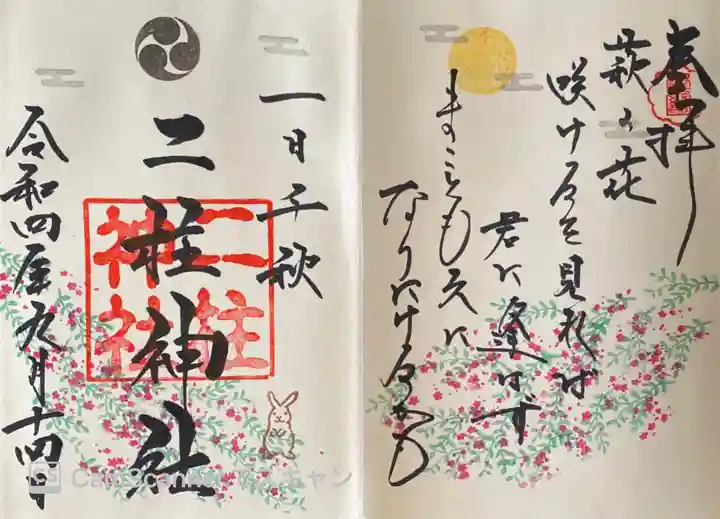 奉拝
萩の花
咲けるを見れば
君に逢はず
まことも久に
なりにけるかも
一日千秋
二柱神社
二柱
神社
令和四年九月十四日
CamScanner でスキャン